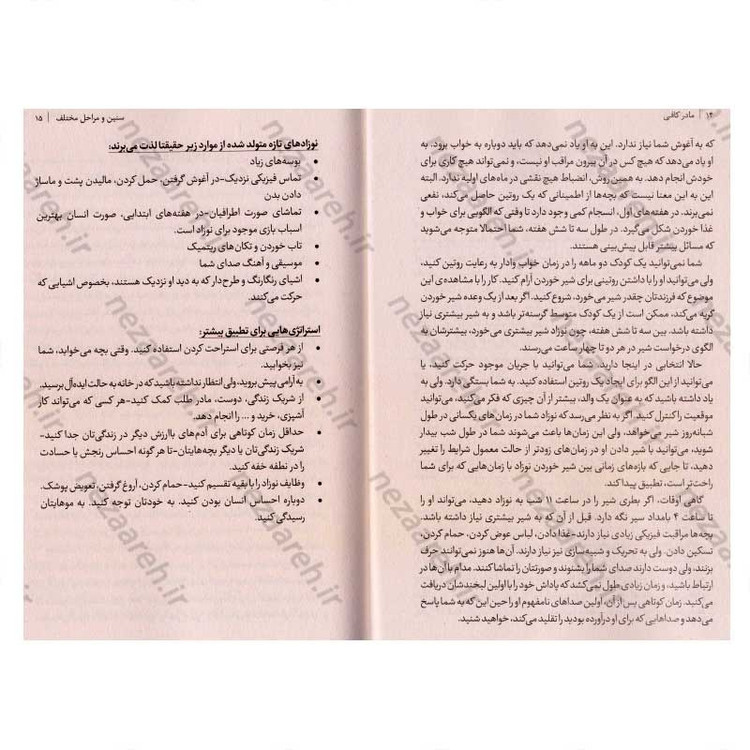 ۱۴ | مادر کافی
که به آغوش شما نیاز ندارد. این به او یاد نمی‌دهد که باید دوباره به خواب برود. به
او یاد می‌دهد که هیچ کس در آن بیرون مراقب او نیست، و نمی‌تواند هیچ کاری برای
خودش انجام دهد. به همین روش، انضباط هیچ نقشی در ماه‌های اولیه ندارد. البته
این به این معنا نیست که بچه‌ها از اطمینانی که یک روتین حاصل می‌کند، نفعی
نمی‌برند. در هفته‌های اول، انسجام کمی وجود دارد تا وقتی که الگویی برای خواب و
غذا خوردن شکل می‌گیرد. در طول سه تا شش هفته، شما احتمالا متوجه می‌شوید
که مسائل بیشتر قابل پیش‌بینی هستند.
شما نمی‌توانید یک کودک دو ماهه را در زمان خواب وادار به رعایت روتین کنید،
ولی می‌توانید او را با داشتن روتینی برای شیر خوردن آرام کنید. کار را با مشاهده‌ی این
موضوع که فرزندتان چقدر شیر می‌خورد، شروع کنید. اگر بعد از یک وعده شیر خوردن
گریه می‌کند، ممکن است از یک کودک متوسط گرسنه‌تر باشد و به شیر بیشتری نیاز
داشته باشد. بین سه تا شش هفته، چون نوزاد شیر بیشتری می‌خورد، بیشترشان به
الگوی درخواست شیر در هر دو تا چهار ساعت می‌رسند.
حالا انتخابی در اینجا دارید. شما می‌توانید با جریان موجود حرکت کنید، یا
می‌توانید از این الگو برای ایجاد یک روتین استفاده کنید. به شما بستگی دارد. ولی
یاد داشته باشید که به عنوان یک والد، بیشتر از آن چیزی که فکر می‌کنید، می‌توانید
موقعیت را کنترل کنید. اگر به نظر می‌رسد که نوزاد شما در زمان‌های یکسانی در طول
شبانه‌روز شیر می‌خواهد، ولی این زمان‌ها باعث می‌شوند شما در طول شب بیدار
شوید، می‌توانید با شیر دادن او در زمان‌های زودتر از حالت معمول شرایط را تغییر
دهید، تا جایی که بازه‌های زمانی بین شیر خوردن نوزاد با زمان‌هایی که برای شما
راحت‌تر است، تطبیق پیدا کند.
گاهی اوقات، اگر بطری شیر را در ساعت ۱۱ شب به نوزاد دهید، می‌تواند او را
تا ساعت ۴ بامداد سیر نگه دارد. قبل از آن که به شیر بیشتری نیاز داشته باشد.
بچه‌ها مراقبت فیزیکی زیادی نیاز دارند-غذا دادن، لباس عوض کردن، حمام کردن،
تسکین دادن. ولی به تحریک و شبیه‌سازی نیز نیاز دارند. آن‌ها هنوز نمی‌توانند حرف
بزنند، ولی دوست دارند صدای شما را بشنوند و صورتتان را تماشا کنند. مدام با آن‌ها در
ارتباط باشید، و زمان زیادی طول نمی‌کشد که پاداش خود را با اولین لبخندشان دریافت
می‌کنید. زمان کوتاهی پس از آن، اولین صداهای نامفهوم او را حین این که به شما پاسخ
می‌دهد و صداهایی که برای او درآورده بودید را تقلید می‌کند، خواهید شنید.
سنین و مراحل مختلف | ۱۵
نوزادهای تازه متولد شده از موارد زیر حقیقتا لذت می‌برند:
• بوسه‌های زیاد
• تماس فیزیکی نزدیک-در آغوش گرفتن، حمل کردن، مالیدن پشت و ماساژ
دادن بدن
• تماشای صورت اطرافیان-در هفته‌های ابتدایی، صورت انسان بهترین
اسباب بازی موجود برای نوزاد است.
• تاب خوردن و تکان‌های ریتمیک
• موسیقی و آهنگ صدای شما
• اشیای رنگارنگ و طرح‌دار که به دید او نزدیک هستند، بخصوص اشیایی که
حرکت می‌کنند.
استراتژی‌هایی برای تطبیق بیشتر:
• از هر فرصتی برای استراحت کردن استفاده کنید. وقتی بچه می‌خوابد، شما
نیز بخوابید.
• به آرامی پیش بروید، ولی انتظار نداشته باشید که در خانه به حالت ایده‌آل برسید.
• از شریک زندگی، دوست، مادر طلب کمک کنید-هر کسی که می‌تواند کار
آشپزی، خرید و ... را انجام دهد.
• حداقل زمان کوتاهی برای آدم‌های باارزش دیگر در زندگی‌تان جدا کنید-
شریک زندگی‌تان یا دیگر بچه‌هایتان-تا هر گونه احساس رنجش یا حسادت
را در نطفه خفه کنید.
• وظایف نوزاد را با بقیه تقسیم کنید-حمام کردن، آروغ گرفتن، تعویض پوشک.
• دوباره احساس انسان بودن کنید. به خودتان توجه کنید. به موهایتان
رسیدگی کنید.
nezaareh.ir